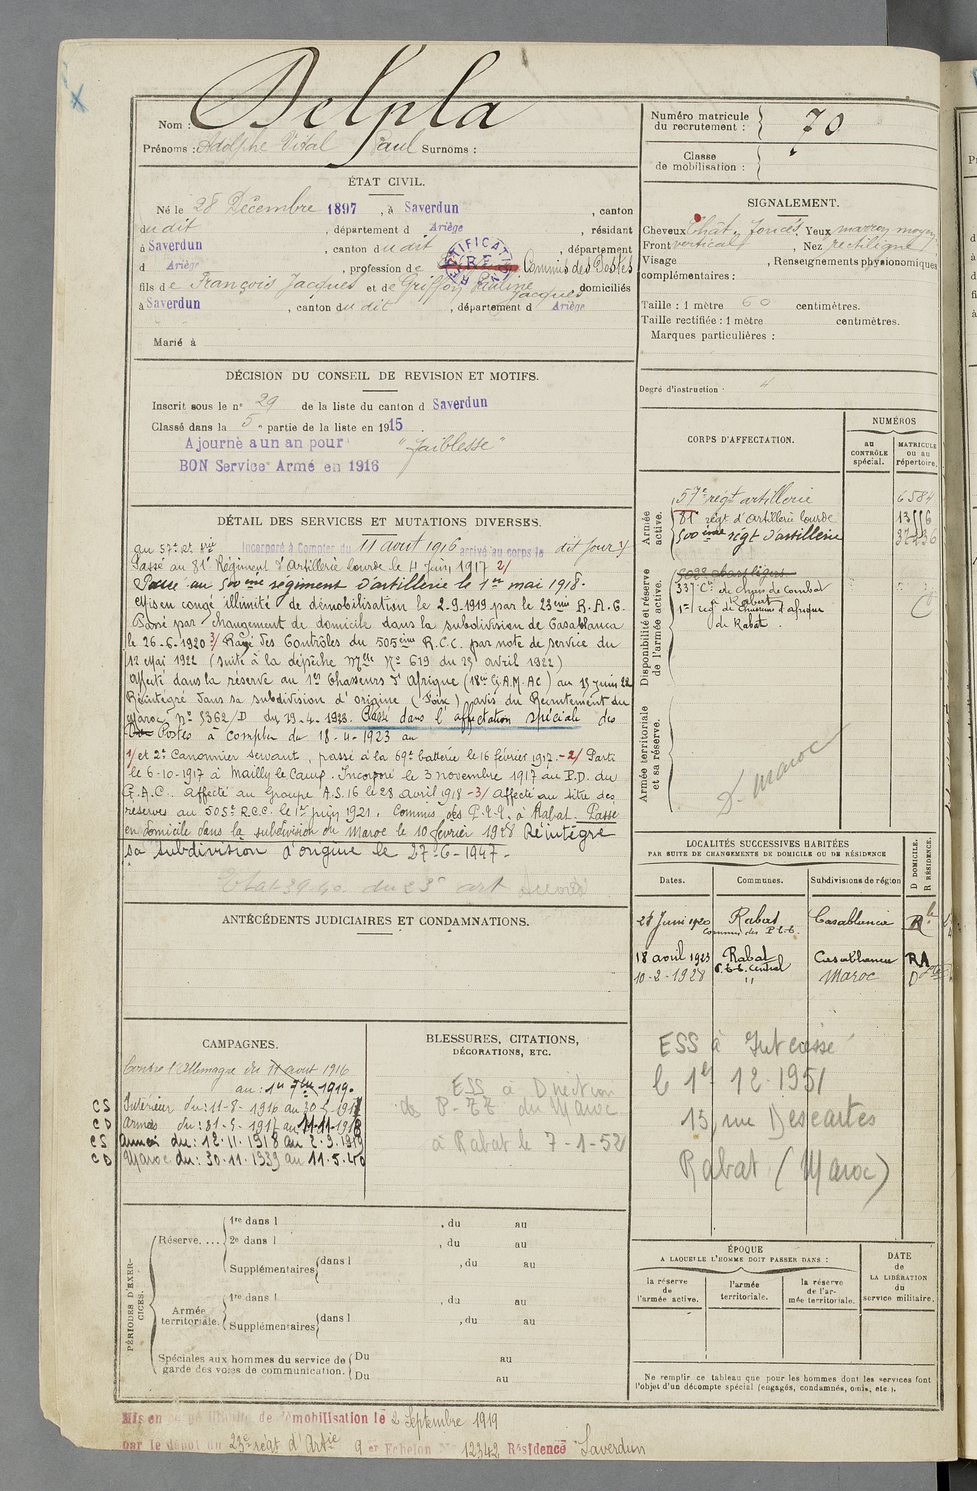 Nom : Delpla
Prénoms : Adolphe Vital Paul Surnoms :
Numéro matricule du recrutement : 70
Classe de mobilisation :
ÉTAT CIVIL.
Né le 28 Décembre 1897, à Saverdun, canton
du dit, département d Ariège, résidant
à Saverdun, canton du dit, département
d Ariège, profession de Commis des Postes
RECTIFICATION
fils de François Jacques et de Griffon Pauline Jacques domiciliés
à Saverdun, canton du dit, département d Ariège
Marié à
SIGNALEMENT.
Cheveux Chât. foncés Yeux marron moyen
Front vertical, Nez rectiligne
Visage , Renseignements physionomiques
complémentaires :
Taille : 1 mètre 60 centimètres.
Taille rectifiée : 1 mètre centimètres.
Marques particulières :
Degré d'instruction : 4
DÉCISION DU CONSEIL DE REVISION ET MOTIFS.
Inscrit sous le n° 29 de la liste du canton d Saverdun
Classé dans la 5e partie de la liste en 1915.
Ajourné a un an pour "faiblesse"
BON Service Armé en 1916
CORPS D'AFFECTATION.
NUMÉROS
au CONTRÔLE spécial.
MATRICULE ou au répertoire.
Armée active.
57e régt artillerie 6584
81e régt d'artillerie lourde
500ème régt d'artillerie
Disponibilité et réserve de l'armée active.
337 Cie de Chars de Combat
à Rabat
1er reg. de Chasseurs d'afrique
de Rabat.
Armée territoriale et sa réserve.
D. Maroc
DÉTAIL DES SERVICES ET MUTATIONS DIVERSES.
au 57e Incorporé à Compter du 11 aout 1916 arrivé au corps le dit jour 1/
Passé au 81e Régiment d'Artillerie lourde le 4 Juin 1917 2/
Passé au 500ème régiment d'artillerie le 1er mai 1918.
Mis en congé illimité de démobilisation le 2.9.1919 par le 23ème R.A.C.
Passé par changement de domicile dans la subdivision de Casablanca
le 26-6-1920 3/ Rayé des Contrôles du 505ème R.C.C. par note de service du
12 Mai 1922 (suite à la dépêche Mlle No 619 du 29 avril 1922)
affecté dans la réserve au 1er Chasseurs d'Afrique (18me G.A.M.AC) au 15 juin 22
Réintégré dans sa subdivision d'origine (Foix) avis du Recrutement du
Maroc No 5362/D du 19-4-1923. Passé dans l'affectation spéciale des
Postes à compter du 18-4-1923 au
1/ et 2e Canonnier servant, passé à la 69e batterie le 16 février 1917. - 2/ Parti
le 6-10-1917 à Mailly le Camp. Incorporé le 3 novembre 1917 au P.D. du
G.A.C. affecté au Groupe A.S.16 le 28 avril 1918 - 3/ affecté au titre des
réserves au 505e R.C.C. le 1er juin 1921. Commis des P.T.T. à Rabat. Passe
en domicile dans la subdivision du Maroc le 10 février 1928 Réintégré
sa subdivision d'origine le 27-6-1947.
ANTÉCÉDENTS JUDICIAIRES ET CONDAMNATIONS.
LOCALITÉS SUCCESSIVES HABITÉES
PAR SUITE DE CHANGEMENTS DE DOMICILE OU DE RÉSIDENCE.
Dates. Communes. Subdivisions de région D DOMICILE. R RÉSIDENCE.
28 Juin 1920 Rabat Casablanca R
Commis des P.T.T.
18 avril 1923 Rabat Casablanca RA
P.T.T. Central
10-2-1928 " Maroc D
ESS à
le 1er 12.1951
15, rue Descartes
Rabat (Maroc)
CAMPAGNES.
Contre l'Allemagne du 11 aout 1916
au : 1er 7bre 1919.
CS Intérieur du : 11-8-1916 au 30-5-1917
CD Armées du : 31-5-1917 au 11-11-1918
CS Armées du : 12.11.1918 au 2.9.1919
CD Maroc du : 30.11.1939 au 11.5.40
BLESSURES, CITATIONS,
DÉCORATIONS, ETC.
ESS à Direction
des P-TT du Maroc
à Rabat le 7-1-52
PÉRIODES D'EXERCICES.
Réserve. ... 1re dans l , du au
2e dans l , du au
Supplémentaires dans l , du au
Armée territoriale. 1re dans l , du au
Supplémentaires dans l , du au
Spéciales aux hommes du service de garde des voies de communication. Du au
Du au
ÉPOQUE
A LAQUELLE L'HOMME DOIT PASSER DANS :
la réserve de l'armée active.
l'armée territoriale.
la réserve de l'armée territoriale.
DATE de LA LIBÉRATION du service militaire.
Ne remplir ce tableau que pour les hommes dont les services font
l'objet d'un décompte spécial (engagés, condamnés, omis, etc.).
Mis en congé illimité de démobilisation le 2 Septembre 1919
par le dépôt du 23e régt d'Artie 9er Echelon No 12342 Résidence Saverdun